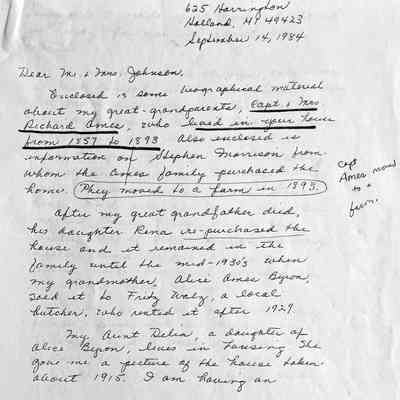 625 Harrington
Holland, MI 49423
September 14, 1984
Dear Mr. & Mrs. Johnson,
Enclosed is some biographical material
about my great-grandparents, Capt. & Mrs.
Richard Ames, who lived in your house
from 1857 to 1893. Also enclosed is
information on Stephen Morrison from
whom the Ames family purchased the
home. They moved to a farm in 1893.
Capt
Ames moved
to
a
farm.
After my great grandfather died,
his daughter Rena re-purchased the
house and it remained in the
family until the mid-1930's when
my grandmother, Alice Ames Byron,
sold it to Fritz Walz, a local
butcher, who rented it after 1929.
My Aunt Delia, a daughter of
Alice Byron, lives in Lansing. She
gave me a picture of the house taken
about 1915. I am having an